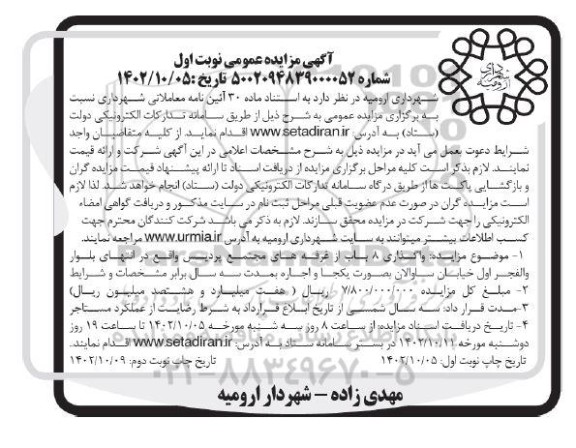 آگهی مزایده عمومی نوبت اول
شماره ۵۰۰۲۰۹۴۸۳۹۰۰۰۰۵۲ تاریخ :۱۴۰۲/۱۰/۰۵
شهرداری ارومیه
شهرداری ارومیه در نظر دارد به استناد ماده ۳۰ آئین نامه معاملاتی شهرداری نسبت
به برگزاری مزایده عمومی به شرح ذیل از طریق سامانه تدارکات الکترونیکی دولت
(ستاد) به آدرس www.setadiran.ir اقدام نماید. از کلیه متقاضیان واجد
شرایط دعوت بعمل می آید در مزایده ذیل به شرح مشخصات اعلامی در این آگهی شرکت و ارائه قیمت
نمایند. لازم بذکر است کلیه مراحل برگزاری مزایده از دریافت اسناد تا ارائه پیشنهاد قیمت مزایده گران
و بازگشایی پاکت ها از طریق درگاه سامانه تدارکات الکترونیکی دولت (ستاد) انجام خواهد شد. لذا لازم
است مزایده گران در صورت عدم عضویت قبلی مراحل ثبت نام در سایت مذکور و دریافت گواهی امضاء
الکترونیکی را جهت شرکت در مزایده محقق سازند. لازم به ذکر می باشد شرکت کنندگان محترم جهت
کسب اطلاعات بیشتر میتوانند به سایت شهرداری ارومیه به آدرس www.urmia.ir مراجعه نمایند.
۱- موضوع مزایده: واگذاری ۸ باب از غرفه های مجتمع پردیس واقع در انتهای بلوار
والفجر اول خیابان ساوالان بصورت یکجا و اجاره بمدت سه سال برابر مشخصات و شرایط
۲- مبلغ کل مزایده ۷/۸۰۰/۰۰۰/۰۰۰ ریال (هفت میلیارد و هشتصد میلیون ریال)
۳-مدت قرار داد: سه سال شمسی از تاریخ ابلاغ قرارداد به شرط رضایت از عملکرد مستاجر
۴- تاریخ دریافت اسناد مزایده: از ساعت ۸ روز سه شنبه مورخه ۱۴۰۲/۱۰/۰۵ تا ساعت ۱۹ روز
دوشنبه مورخه ۱۴۰۲/۱۰/۱۱ در بستر سامانه ستاد به آدرس: www.setadiran.ir اقدام نمایند.
تاریخ چاپ نوبت اول: ۱۴۰۲/۱۰/۰۵ تاریخ چاپ نوبت دوم: ۱۴۰۲/۱۰/۰۹
۰۲۱-۸۸۳۴۹۶۷۰-۵
مهدی زاده – شهردار ارومیه